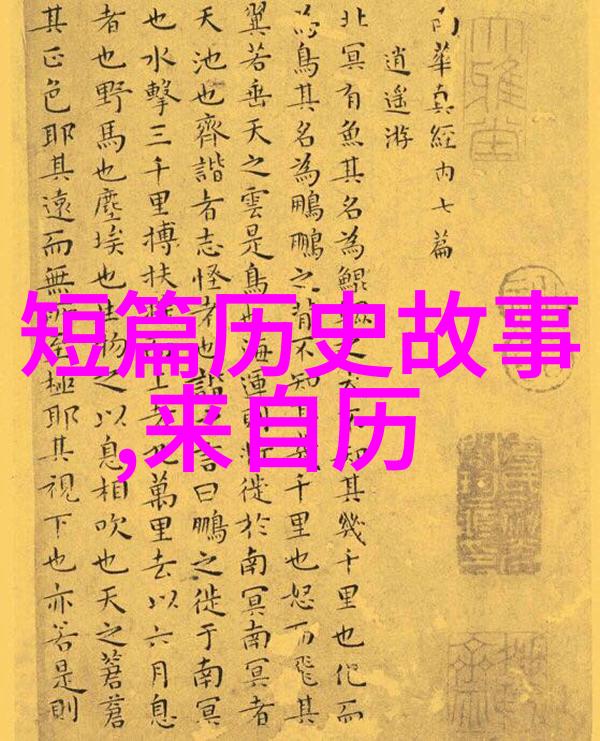 南華真經内七篇
逍遥游
北冥有魚其名為鯤鯤之大不知其幾千里也化而
為鳥其名為鵬鵬之背不知其幾千里也怒而飛其
翼若垂天之雲是鳥也海運則將徙於南冥南冥者
天池也齊諧者志怪者也諧之言曰鵬之徙于南冥
也水擊三千里搏扶上九萬里去以六月息
者也野馬也塵埃也生物之以息相吹也天之蒼蒼
其正色耶其遠而無所至極耶其視下也亦若是則
短篇历史故事
,来自历